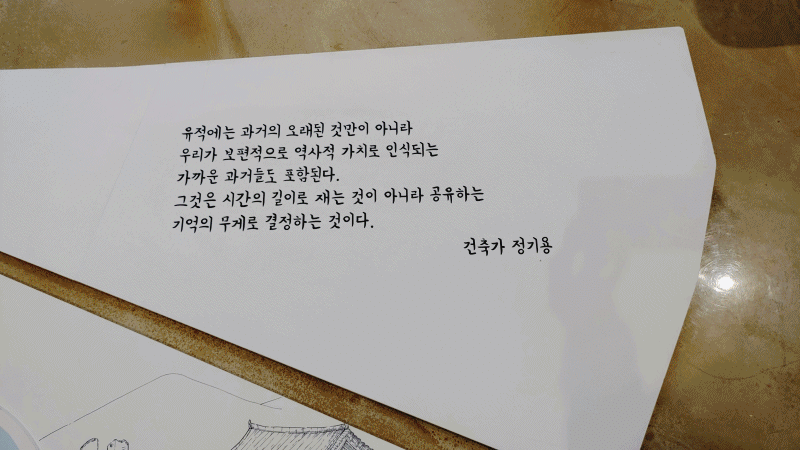 유적에는 과거의 오래된 것만이 아니라
우리가 보편적으로 역사적 가치로 인식되는
가까운 과거들도 포함된다.
그것은 시간의 길이로 재는 것이 아니라 공유하는
기억의 무게로 결정하는 것이다.
건축가 정기용